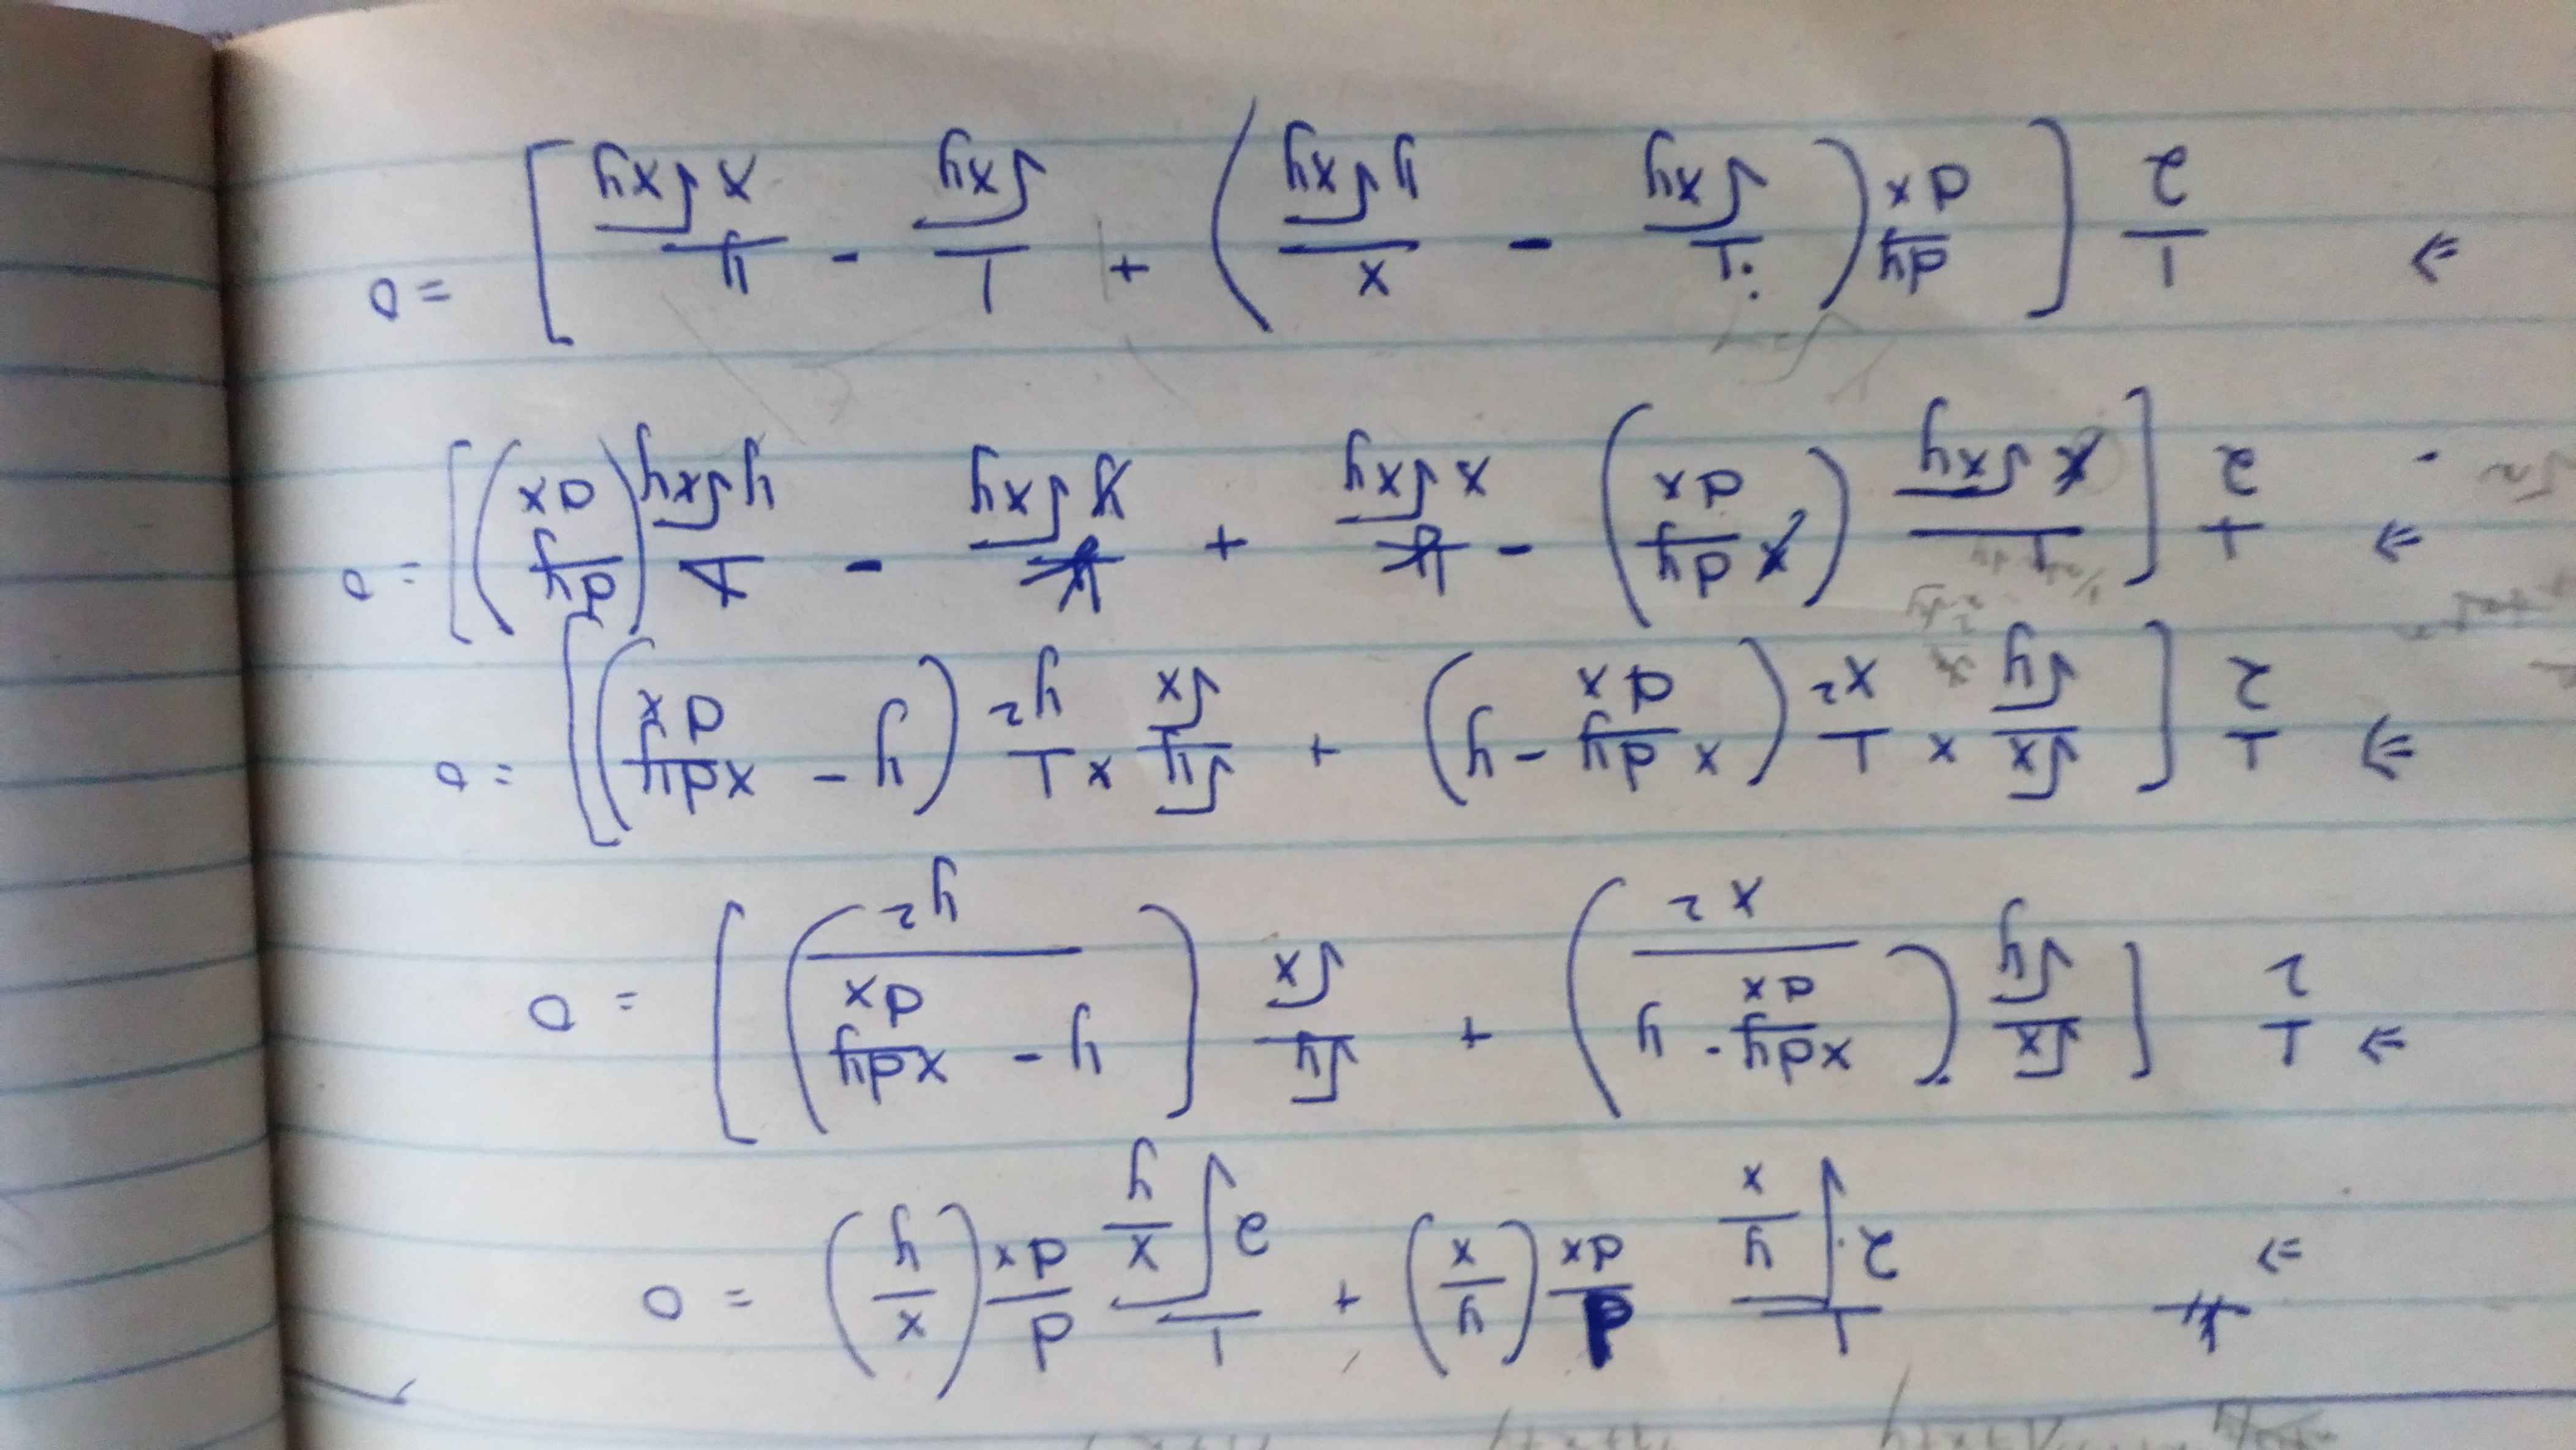 ⇒ 1/(2√(y/x)) d/dx (y/x) + 1/(2√(x/y)) d/dx (x/y) = 0
⇒ 1/2 [ √x/√y ( (x dy/dx - y)/x² ) + √y/√x ( (y - x dy/dx)/y² ) ] = 0
⇒ 1/2 [ √x/√y × 1/x² ( x dy/dx - y ) + √y/√x × 1/y² ( y - x dy/dx ) ] = 0
⇒ 1/2 [ 1/(x√xy) ( x dy/dx ) - y/(x√xy) + y/(y√xy) - x/(y√xy) ( dy/dx ) ] = 0
⇒ 1/2 [ dy/dx ( 1/√xy - x/(y√xy) ) + 1/√xy - y/(x√xy) ] = 0